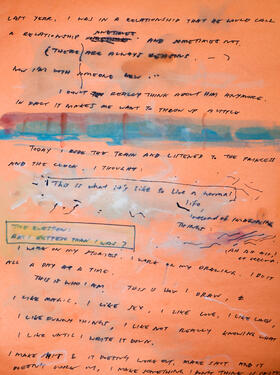 LAST YEAR, I WAS IN A RELATIONSHIP THAT HE WOULD CALL
A RELATIONSHIP SOMETIMES AND SOMETIMES NOT.
(THERE ARE ALWAYS REASONS.
NOW I'M WITH SOMEONE NEW ...
I DON'T REALLY THINK ABOUT HIM ANYMORE.
IN FACT IT MAKES ME WANT TO THROW UP A LITTLE
TODAY I RODE THE TRAIN AND LISTENED TO THE PRINCESS
AND THE CLOCK. I THOUGHT:
This is what it's like to live a normal
life
INSTEAD OF
THINGS
THE QUESTION:
AM I BETTER THAN I WAS?
I WORK ON MY STORIES. I WORK ON MY DRAWING. I DO IT
ALL A DAY AT A TIME.
THIS IS WHO I AM. THIS IS HOW I DRAW,
I LIKE MAGIC. I LIKE SEX, I LIKE LOVE, I LIKE
I LIKE FUNNY THINGS, I LIKE NOT REALLY KNOWING WHAT
I LIKE UNTIL I WRITE IT DOWN.
I MAKE SHIT & IT DOESN'T WORK OUT, MAKE SHIT AND IT
DOESN'T WORK OUT, I MAKE SOMETHING I DON'T THINK IS